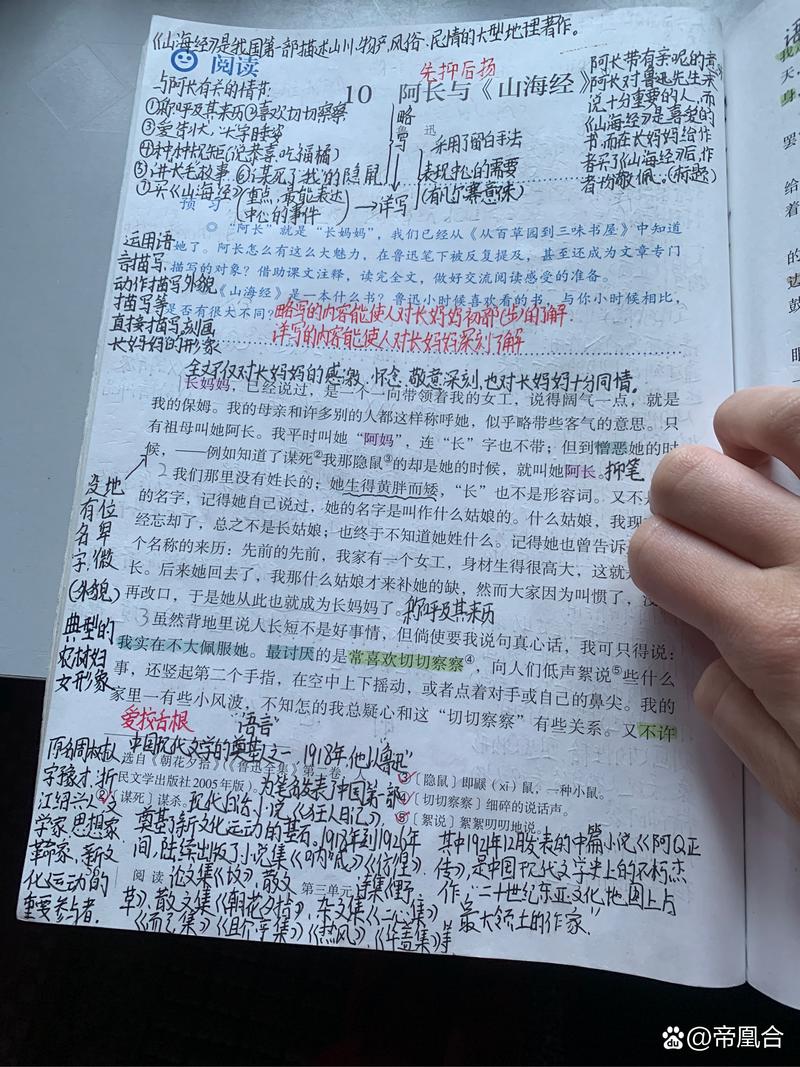 《山海经》是我国第一部描述山川、物产、风俗、民情的大型地理著作。
阅读
先抑后扬
10 阿长与《山海经》
鲁迅
与阿长有关的情节:
①称呼及其来历②喜欢切切察察
④种种规矩(说恭喜,吃福橘)
⑤讲长毛故事 ⑥谋死了我的隐鼠
⑦买《山海经》(重点,最能表达
中心的事件)→详写
略
写
采用了留白手法
表现中心的需要
阿长带有亲昵的意
阿长对鲁迅先生来
说十分重要的人,而
《山海经》是喜爱的
书,而在长妈妈给作
者买了《山海经》后,作
者均敬佩。(标题)
预习
◎“阿长”就是“长妈妈”,我们已经从《从百草园到三味书屋》中知道
她了。阿长怎么有这么大魅力,在鲁迅笔下被反复提及,甚至还成为文章专门
描写的对象?借助课文注释,读完全文,做好交流阅读感受的准备。
《山海经》是一本什么书?鲁迅小时候喜欢看的书,与你小时候相比,
是否有很大不同?
运用语
言描写,
动作描写外貌
描写等
直接描写刻画
长妈妈的形象
略写的内容能使人对长妈妈初部(步)的了解.
详写的内容能使人对长妈妈深刻了解
全文不仅对长妈妈的感激、怀念、敬意深刻,也对长妈妈十分同情。
长妈妈,已经说过,是一个一向带领着我的女工,说得阔气一点,就是
我的保姆。我的母亲和许多别的人都这样称呼她,似乎略带些客气的意思。只
有祖母叫她阿长。我平时叫她“阿妈”,连“长”字也不带;但到憎恶她的时
候,——例如知道了谋死②我那隐鼠③的却是她的时候,就叫她阿长。
抑笔
2 我们那里没有姓长的;她生得黄胖而矮,“长”也不是形容词。又不是
的名字,记得她自己说过,她的名字是叫作什么姑娘的。什么姑娘,我现
经忘却了,总之不是长姑娘;也终于不知道她姓什么。记得她也曾告诉
个名称的来历:先前的先前,我家有一个女工,身材生得很高大,这就
长。后来她回去了,我那什么姑娘才来补她的缺,然而大家因为叫惯了,没
再改口,于是她从此也就成为长妈妈了。
称呼及其来历
没地
有位
名卑
字,微
(外貌)
3 虽然背地里说人长短不是好事情,但倘使要我说句真心话,我可只得说:
我实在不大佩服她。最讨厌的是常喜欢切切察察④,向人们低声絮说⑤些什么
事,还竖起第二个手指,在空中上下摇动,或者点着对手或自己的鼻尖。我的
家里一有些小风波,不知怎的我总疑心和这“切切察察”有些关系。又不许
典型的
农村妇
女形象
爱嚼舌根
“语言”
选自《朝花夕拾》(《鲁迅全集》第二卷,人
民文学出版社2005年版)。
〔谋死〕谋杀。
③〔隐鼠〕即鼷(xī)鼠,一种小鼠。
④〔切切察察〕细碎的说话声。
⑤〔絮说〕絮絮叨叨地说。
原名周树人
字豫才,浙
江绍兴人
学家、思想家
革命家、新文
化运动的
重要参与者.
中国现代文学的奠基之一 1918年,他以“鲁迅”
为笔名发表了中国第一部
现代白话小说《狂人日记》,
奠基了新文化运动的基石。1918年到1926年
间,陆续出版了小说集《呐喊》《彷徨》,
论文集《坟》,散文
诗集《野
草》,散文集《朝花夕拾》,杂文集《二心集》,
《而已集》《且介亭集》《热风》、《华盖集》等
其中1921年12月发表的中篇小说《阿Q正
传》,是中国现代文学史上的不朽杰
作,“二十世纪东亚文化地图上占
最大领土的作家”
阅读
第三单元
Baidu@帝凰合